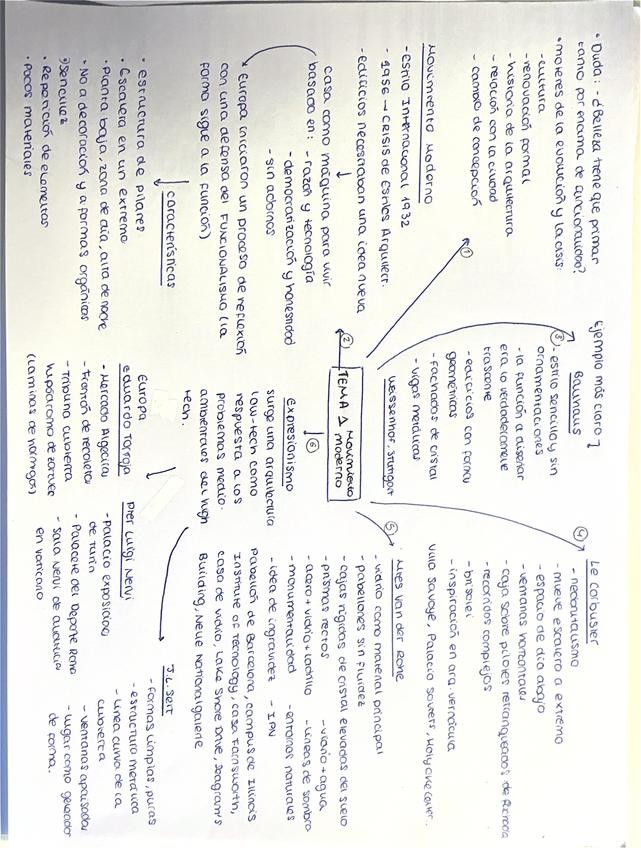 • Duda: - ¿Belleza tiene que primar
tanto por encima de funcionalidad?
• motores de la evolución y la crisis:
- cultura
- renovación formal
- historia de la arquitectura
- relación con la ciudad
- cambio de concepción
①
Movimiento Moderno
- Estilo Internacional 1932
- 1956 → crisis de Estilos Arquitect.
- edificios necesitaban una idea nueva
casa como máquina para vivir
basado en: - razón y tecnología
- democratización y honestidad
- sin adornos
Europa iniciaron un proceso de reflexión
con una defensa del FUNCIONALISMO (la
forma sigue a la función)
características
• estructura de pilares
• escalera en un extremo
• Planta baja, zona de día, alta de noche
• No a decoración y a formas orgánicas
• sencillez
• Repetición de elementos
• Pocos materiales
②
TEMA 1
Movimiento
moderno
Ejemplo más claro
③
Bauhaus
- estilo sencillo y sin
ornamentaciones
- la función a diseñar
era lo verdaderamente
- edificios con forma
geométricas
- fachadas de cristal
- vigas metálicas
④
Le Corbusier
- mueve escalera a extremo
- espacio de día abajo
- ventanas horizontales
- caja sobre pilotes retranqueados de
- recorridos complejos
- brisolei
- inspiración en arq. vernácula
Villa Savoye, Palacio Soviets,
⑤
Mies Van der Rohe
- vidrio como material principal
- pabellones sin fluidez
- cajas rígidas de cristal elevadas del suelo
- prismas rectos - vidrio + agua
- acero + vidrio + ladrillo - líneas de sombra
- monumentalidad - entornos naturales
- idea de ingravidez - IPN
Pabellón de Barcelona, campus de Illinois
Institute of Technology, casa Farnsworth,
casa de vidrio, Lake Shore Drive, Seagram's
Building, Neue Nationalgalerie
⑥
Expresionismo
surge una arquitectura
low-tech como
respuesta a los
problemas medio-
ambientales del high
tech.
Europa
Eduardo Torroja
- Mercado Algeciras
- Frontón de recoletos
- Tribuna cubierta
hipódromo de zarzuela
(laminas de hormigón)
Pier Luigi Nervi
- Palacio exposiciones
de Turín
- Palacete del Deporte Roma
- Sala Nervi de audiencia
en vaticano
J.L. Sert
- Formas limpias, puras
- estructura metálica
- línea curva de la
cubierta
- ventanas apaisadas
- lugar como generador
de forma.